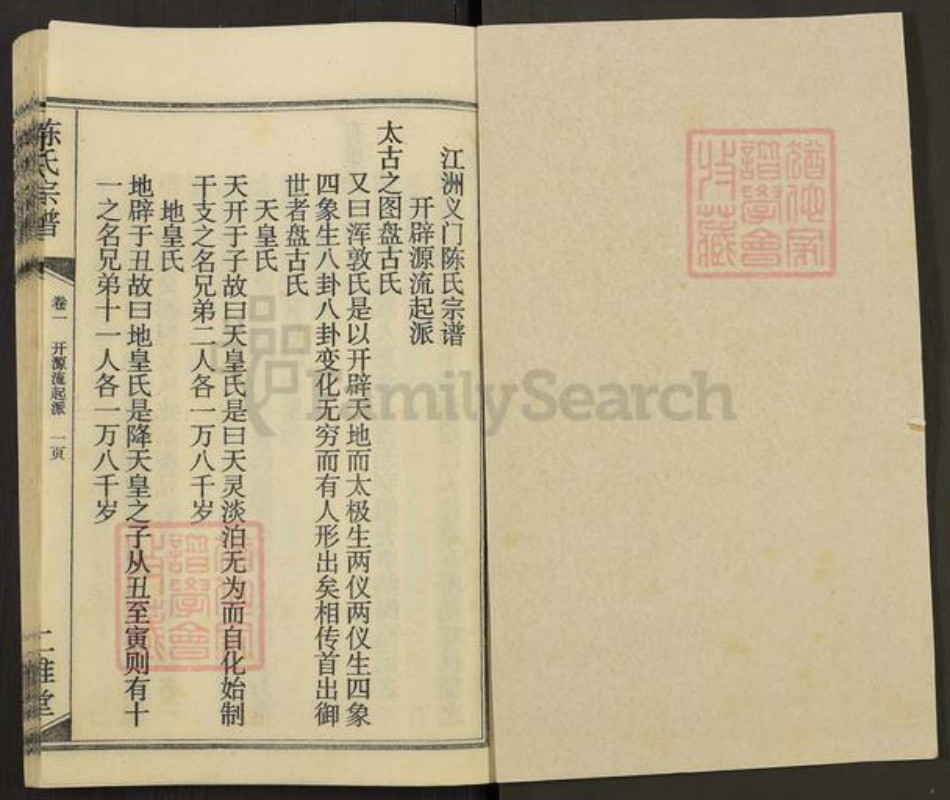 江洲义门陈氏宗谱
开辟源流起派
太古之图盘古氏
又曰浑敦氏是以开辟天地而太极生两仪两仪生四象
四象生八卦八卦变化无穷而有人形出矣相传首出御
世者盘古氏
天皇氏
天开于子故曰天皇氏是曰天灵淡泊无为而自化始制
干支之名兄弟二人各一万八千岁
地皇氏
地辟于丑故曰地皇氏是降天皇之子从丑至寅则有十
一之名兄弟十一人各一万八千岁
陈氏宗谱
卷一 开源流起派 一页
堂
FamilySearch
譜學會
收藏